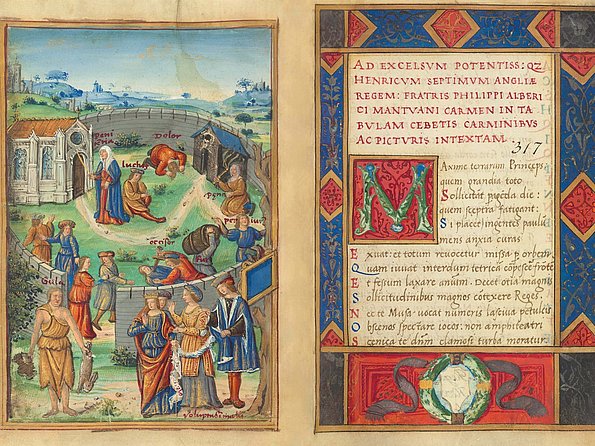 peni
tina
Dolor
luctus
pena
ocossor
Gula
AD EXCELSVM POTENTISS: QZ
HENRICVM SEPTIMVM ANGLIÆ
REGEM: FRATRIS PHILIPPI ALBERI
CI MANTVANI CARMEN IN TA
BVLAM CEBETIS CARMINIBVS
AC PICTVRIS INTEXTAM.
317
Maxime terrarum Princeps
quem grandia toto
Sollicitat pigzela die:
quem sceptra fatigant:
Si placet ingentes paulū
mens anxia curas
Exuat: et totum reuocetur missa p orbem
Quam iuuat interdum tetricā cōpescere frōtē
Et fessum laxare animum. Decet otia magnis
Sollicitudinibus magnos cōtexere Reges.
Nec te Musa uocat numeris lasciua petulcis
Obscenos spectare iocos: non amphiteatri
Scenica te dnm clamosi turba moratur.